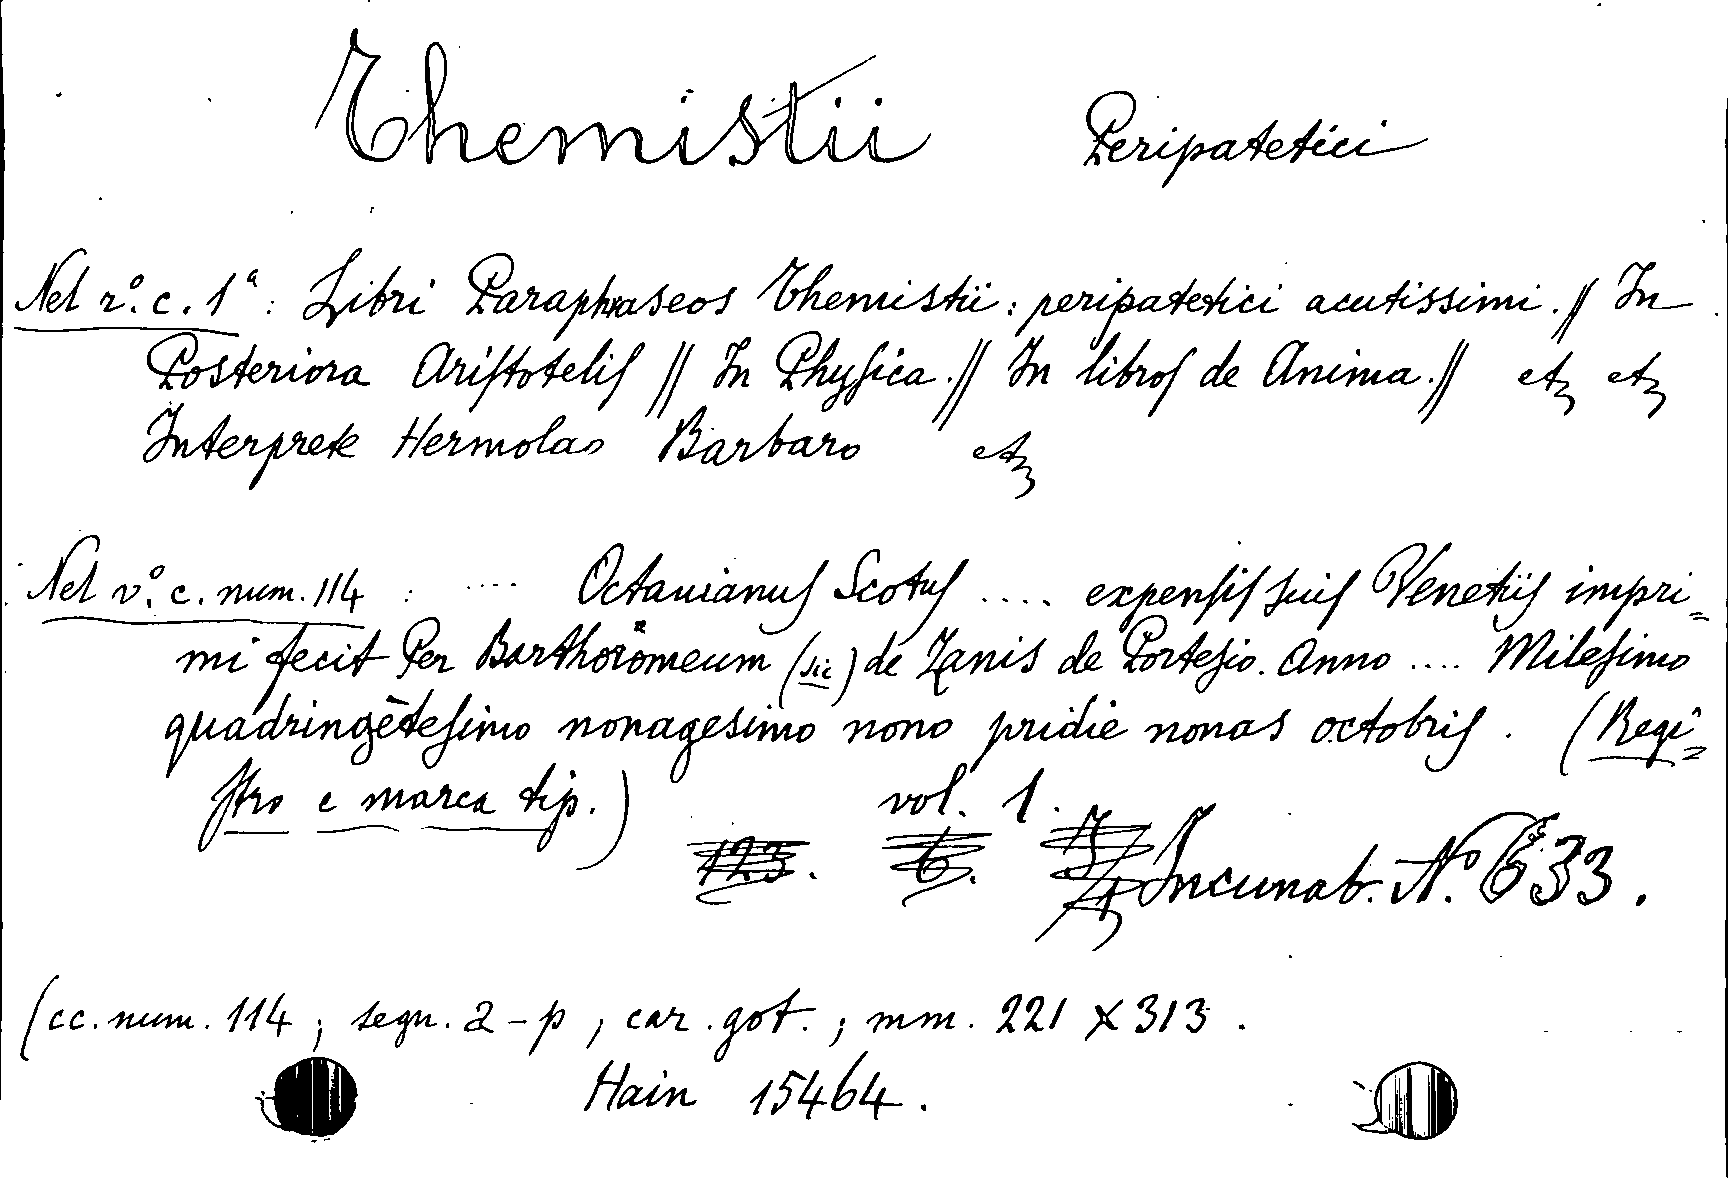 Themistii Peripatetici
Nel rº. c. 1ª: Libri Paraphraseos Themistii: peripatetici acutissimi. // In
Posteriora Ariſtoteliſ // In Phyſica. // In libroſ de Anima. // etc etc
Interprete Hermolao Barbaro etc
Nel vº. c. num. 114 : .... Octauianuſ Scotuſ .... expenſiſ ſuiſ Venetiiſ impri=
mi fecit Per Barthoromeum (sic) de Zanis de Porteſio. Anno .... Mileſimo
quadringēteſimo nonagesimo nono pridie nonas octobriſ. (Regi=
ſtro e marca tip.) vol. 1.
123. 6. Incunab. Nº. 633.
(cc. num. 114 ; segn. a - p ; car. got. ; mm. 221 x 313.
Hain 15464.